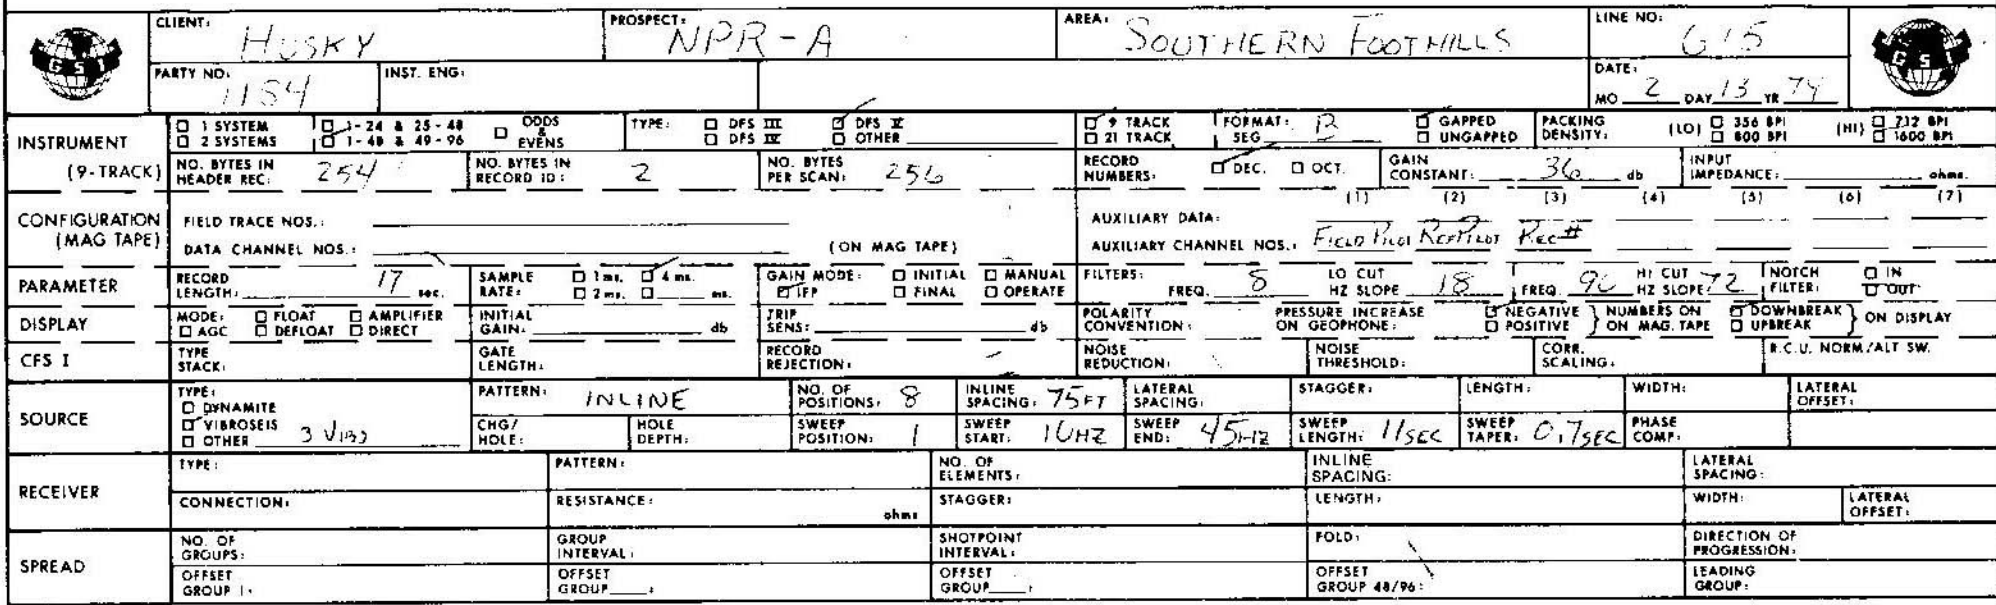 CLIENT: HUSKY PROSPECT: NPR-A AREA: SOUTHERN FOOTHILLS LINE NO: G15
GSI GSI
PARTY NO: 1184 INST. ENG: DATE:
MO 2 DAY 13 YR 79
INSTRUMENT (9-TRACK)
☐ 1 SYSTEM ☐ 1-24 & 25-48 ☐ ODDS & EVENS TYPE: ☐ DFS III ☑ DFS V ☑ 9 TRACK FORMAT: SEG B ☑ GAPPED PACKING DENSITY: (LO) ☐ 356 BPI (HI) ☐ 712 BPI
☐ 2 SYSTEMS ☑ 1-48 & 49-96 ☐ DFS IV ☐ OTHER ☐ 21 TRACK ☐ UNGAPPED ☐ 800 BPI ☑ 1600 BPI
NO. BYTES IN HEADER REC: 254 NO. BYTES IN RECORD ID: 2 NO. BYTES PER SCAN: 256 RECORD NUMBERS: ☑ DEC. ☐ OCT. GAIN CONSTANT: 36 db INPUT IMPEDANCE: ohms.
CONFIGURATION (MAG TAPE)
(1) (2) (3) (4) (5) (6) (7)
FIELD TRACE NOS.: AUXILIARY DATA:
DATA CHANNEL NOS.: (ON MAG TAPE) AUXILIARY CHANNEL NOS.: FIELD PILOT REF PILOT REC#
PARAMETER
RECORD LENGTH: 17 sec. SAMPLE RATE: ☐ 1 ms. ☑ 4 ms. ☐ 2 ms. ☐ ms. GAIN MODE: ☐ INITIAL ☐ MANUAL ☑ IFP ☐ FINAL ☐ OPERATE FILTERS: FREQ. 8 LO CUT HZ SLOPE 18 FREQ. 90 HI CUT HZ SLOPE 72 NOTCH FILTER: ☐ IN ☑ OUT
DISPLAY
MODE: ☐ FLOAT ☐ AMPLIFIER ☐ AGC ☐ DEFLOAT ☐ DIRECT INITIAL GAIN: db TRIP SENS: db POLARITY CONVENTION: PRESSURE INCREASE ON GEOPHONE: ☑ NEGATIVE ☐ POSITIVE } NUMBERS ON MAG. TAPE ☑ DOWNBREAK ☐ UPBREAK } ON DISPLAY
CFS I TYPE STACK: GATE LENGTH: RECORD REJECTION: NOISE REDUCTION: NOISE THRESHOLD: CORR. SCALING: R.C.U. NORM/ALT SW.
SOURCE
TYPE: ☐ DYNAMITE ☑ VIBROSEIS ☐ OTHER 3 VIBS
PATTERN: INLINE NO. OF POSITIONS: 8 INLINE SPACING: 75FT LATERAL SPACING: STAGGER: LENGTH: WIDTH: LATERAL OFFSET:
CHG/HOLE: HOLE DEPTH: SWEEP POSITION: 1 SWEEP START: 10HZ SWEEP END: 45HZ SWEEP LENGTH: 11SEC SWEEP TAPER: 0.7SEC PHASE COMP:
RECEIVER
TYPE: PATTERN: NO. OF ELEMENTS: INLINE SPACING: LATERAL SPACING:
CONNECTION: RESISTANCE: ohms STAGGER: LENGTH: WIDTH: LATERAL OFFSET:
SPREAD
NO. OF GROUPS: GROUP INTERVAL: SHOTPOINT INTERVAL: FOLD: DIRECTION OF PROGRESSION:
OFFSET GROUP 1: OFFSET GROUP : OFFSET GROUP : OFFSET GROUP 48/96: LEADING GROUP: